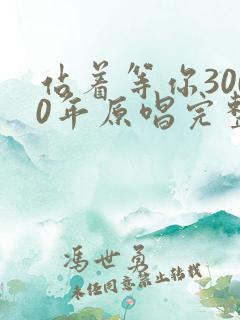 站着等你300
0年 原唱完整
冯世勇
未经同意禁止转载